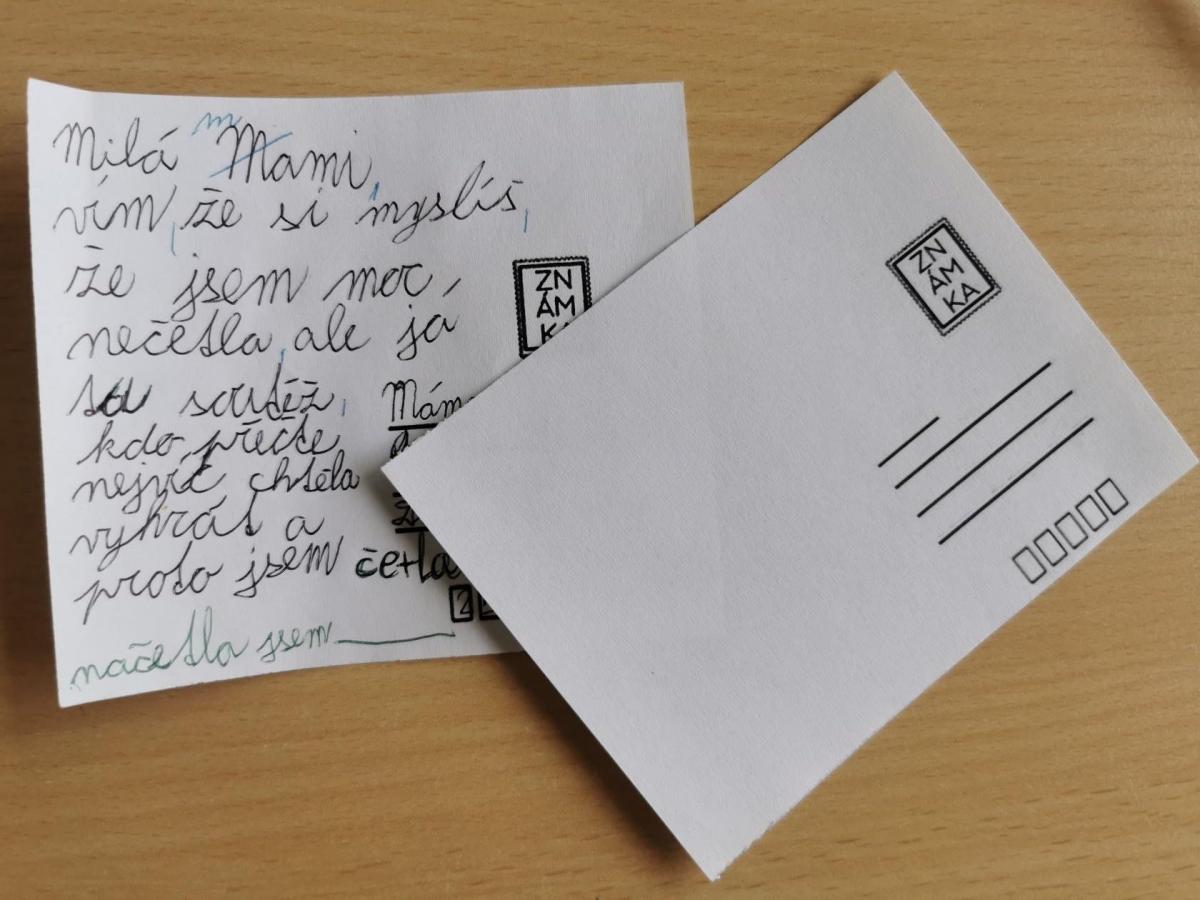 Milá Mami,
m
vím, že si myslíš,
že jsem moc
nečetla, ale já
tu soutěž,
kdo přečte
nejvíc chtěla
vyhrát a
proto jsem četla
načetla jsem
ZN
ÁM
ZN
ÁM
KA